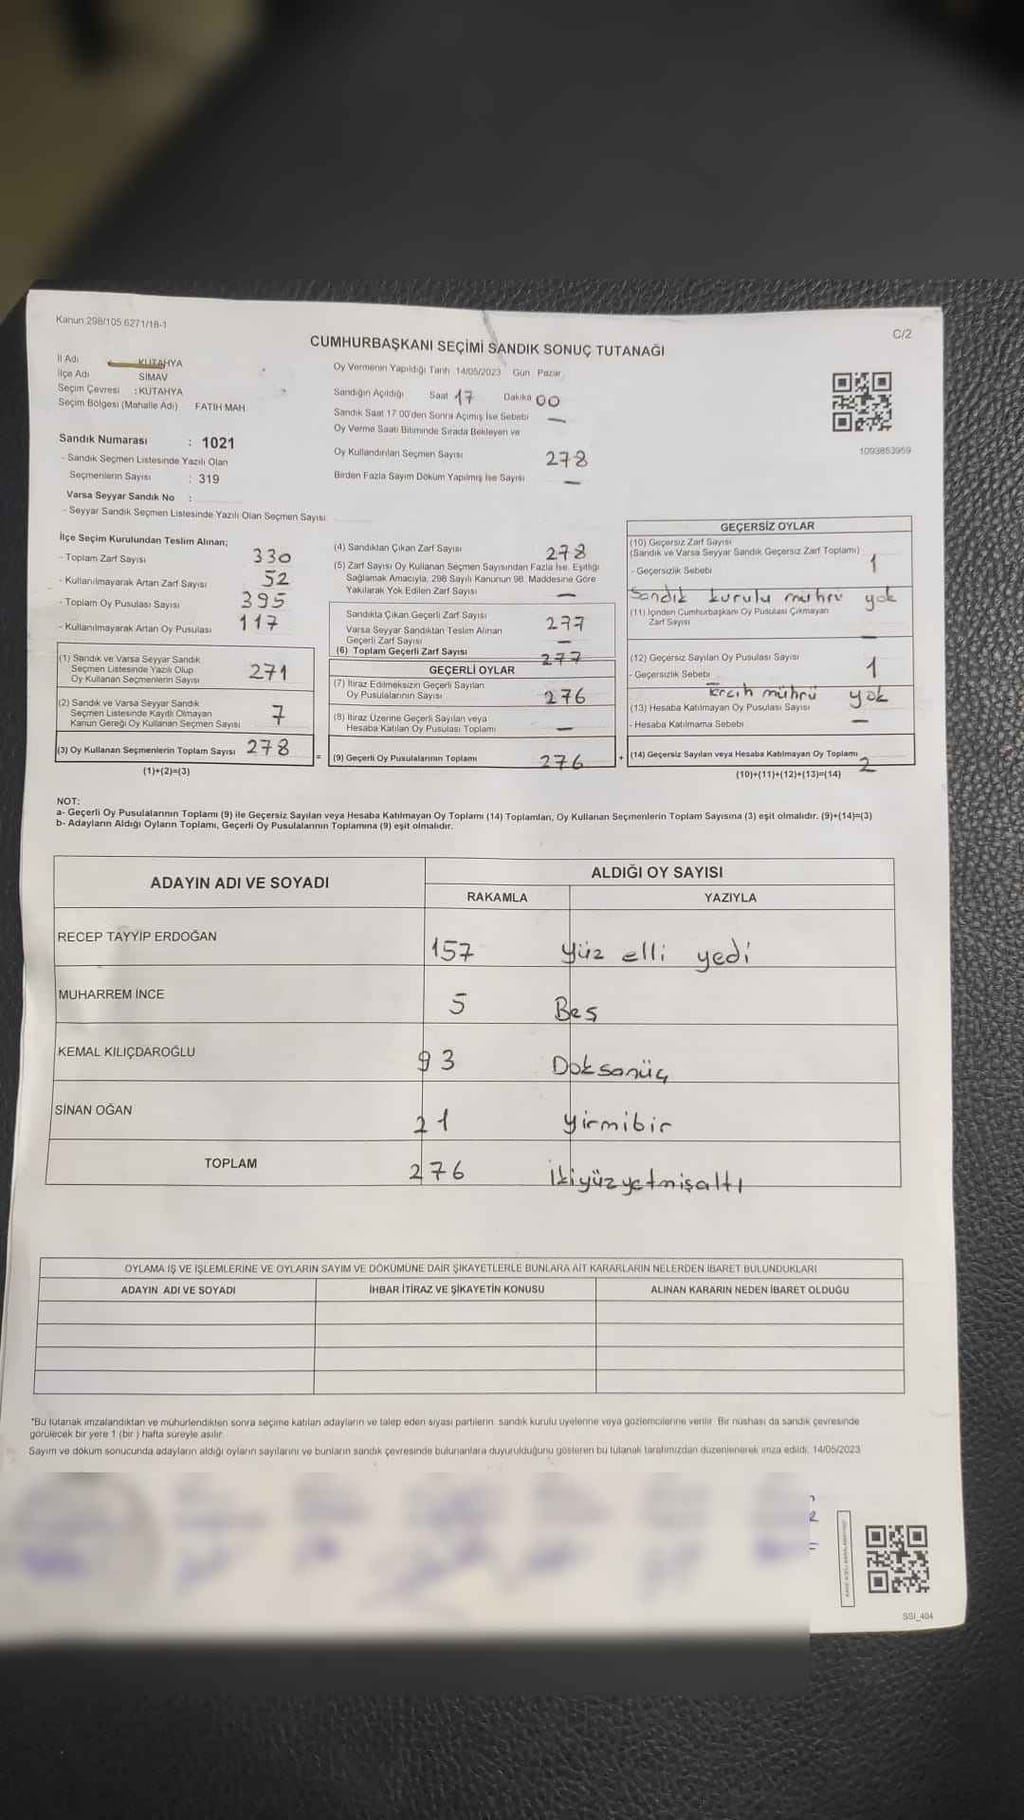 Kanun 298/105 6271/18-1
C/2
CUMHURBAŞKANI SEÇİMİ SANDIK SONUÇ TUTANAĞI
İl Adı KÜTAHYA
İlçe Adı SİMAV
Seçim Çevresi : KÜTAHYA
Seçim Bölgesi (Mahalle Adı) FATİH MAH
Sandık Numarası : 1021
- Sandık Seçmen Listesinde Yazılı Olan
Seçmenlerin Sayısı : 319
Varsa Seyyar Sandık No :
- Seyyar Sandık Seçmen Listesinde Yazılı Olan Seçmen Sayısı
Oy Vermenin Yapıldığı Tarih 14/05/2023 Gün Pazar
Sandığın Açıldığı Saat 17 Dakika 00
Sandık Saat 17 00'den Sonra Açımış İse Sebebi —
Oy Verme Saati Bitiminde Sırada Bekleyen ve
Oy Kullandırılan Seçmen Sayısı 278
Birden Fazla Sayım Döküm Yapılmış İse Sayısı —
1093853959
İlçe Seçim Kurulundan Teslim Alınan;
- Toplam Zarf Sayısı 330
- Kullanılmayarak Artan Zarf Sayısı 52
- Toplam Oy Pusulası Sayısı 395
- Kullanılmayarak Artan Oy Pusulası 117
(1) Sandık ve Varsa Seyyar Sandık
Seçmen Listesinde Yazılı Olup
Oy Kullanan Seçmenlerin Sayısı 271
(2) Sandık ve Varsa Seyyar Sandık
Seçmen Listesinde Kayıtlı Olmayan
Kanun Gereği Oy Kullanan Seçmen Sayısı 7
(3) Oy Kullanan Seçmenlerin Toplam Sayısı 278
(1)+(2)=(3)
(4) Sandıktan Çıkan Zarf Sayısı 278
(5) Zarf Sayısı Oy Kullanan Seçmen Sayısından Fazla İse, Eşitliği
Sağlamak Amacıyla, 298 Sayılı Kanunun 98. Maddesine Göre
Yakılarak Yok Edilen Zarf Sayısı —
Sandıkta Çıkan Geçerli Zarf Sayısı 277
Varsa Seyyar Sandıktan Teslim Alınan
Geçerli Zarf Sayısı —
(6) Toplam Geçerli Zarf Sayısı 277
GEÇERLİ OYLAR
(7) İtiraz Edilmeksizin Geçerli Sayılan
Oy Pusulalarının Sayısı 276
(8) İtiraz Üzerine Geçerli Sayılan veya
Hesaba Katılan Oy Pusulası Toplamı —
= (9) Geçerli Oy Pusulalarının Toplamı 276
GEÇERSİZ OYLAR
(10) Geçersiz Zarf Sayısı
(Sandık ve Varsa Seyyar Sandık Geçersiz Zarf Toplamı) 1
- Geçersizlik Sebebi
Sandık kurulu mührü yok
(11) İçinden Cumhurbaşkanı Oy Pusulası Çıkmayan
Zarf Sayısı —
(12) Geçersiz Sayılan Oy Pusulası Sayısı 1
- Geçersizlik Sebebi
Tercih mührü yok
(13) Hesaba Katılmayan Oy Pusulası Sayısı —
- Hesaba Katılmama Sebebi
+ (14) Geçersiz Sayılan veya Hesaba Katılmayan Oy Toplamı 2
(10)+(11)+(12)+(13)=(14)
NOT:
a- Geçerli Oy Pusulalarının Toplamı (9) ile Geçersiz Sayılan veya Hesaba Katılmayan Oy Toplamı (14) Toplamları, Oy Kullanan Seçmenlerin Toplam Sayısına (3) eşit olmalıdır. (9)+(14)=(3)
b- Adayların Aldığı Oyların Toplamı, Geçerli Oy Pusulalarının Toplamına (9) eşit olmalıdır.
ADAYIN ADI VE SOYADI
ALDIĞI OY SAYISI
RAKAMLA YAZIYLA
RECEP TAYYİP ERDOĞAN 157 Yüz elli yedi
MUHARREM İNCE 5 Beş
KEMAL KILIÇDAROĞLU 93 Doksanüç
SİNAN OĞAN 21 Yirmibir
TOPLAM 276 İkiyüzyetmişaltı
OYLAMA İŞ VE İŞLEMLERİNE VE OYLARIN SAYIM VE DÖKÜMÜNE DAİR ŞİKAYETLERLE BUNLARA AİT KARARLARIN NELERDEN İBARET BULUNDUKLARI
ADAYIN ADI VE SOYADI İHBAR İTİRAZ VE ŞİKAYETİN KONUSU ALINAN KARARIN NEDEN İBARET OLDUĞU
*Bu tutanak imzalandıktan ve mühürlendikten sonra seçime katılan adayların ve talep eden siyasi partilerin sandık kurulu üyelerine veya gözlemcilerine verilir. Bir nüshası da sandık çevresinde
görülecek bir yere 1 (bir ) hafta süreyle asılır
Sayım ve döküm sonucunda adayların aldığı oyların sayılarını ve bunların sandık çevresinde bulunanlara duyurulduğunu gösteren bu tutanak tarafımızdan düzenlenerek imza edildi. 14/05/2023
SSI_404